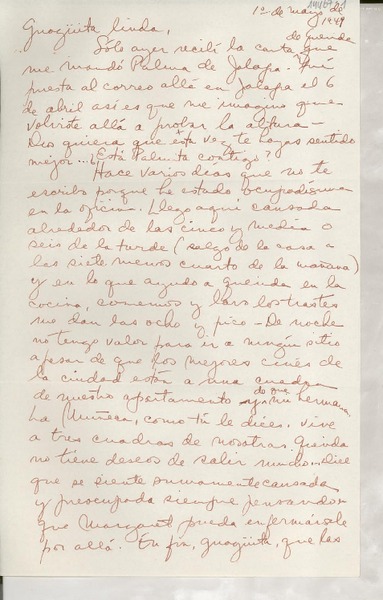 1º de mayo de
1949
Guagüita linda,
Sólo ayer recibí la carta de querida que
me mandó Palma de Jalapa. Fué
puesta al correo allá en Jalapa el 6
de abril así es que me imagino que
volviste allá a probar la altura —
Dios quiera que esta vez te hayas sentido
mejor... ¿Está Palmita contigo?
Hace varios días que no te
escribo porque he estado ocupadísima
en la oficina. Llego aquí cansada
alrededor de las cinco y media o
seis de la tarde (salgo de la casa a
las siete menos cuarto de la mañana)
y en lo que ayudo a querida en la
cocina, comemos y lavo los trastes
me dan las ocho y pico — De noche
no tengo valor para ir a ningún sitio
a pesar de que los mejores cines de
la ciudad están a una cuadra
de nuestro apartamento y de que mi hermana
La Muñeca, como tú le dices, vive
a tres cuadras de nosotras. Querida
no tiene deseos de salir mucho... dice
que se siente sumamente cansada
y preocupada siempre pensando
que Margaret pueda enfermársele
por allá. En fin, guagüita, que las